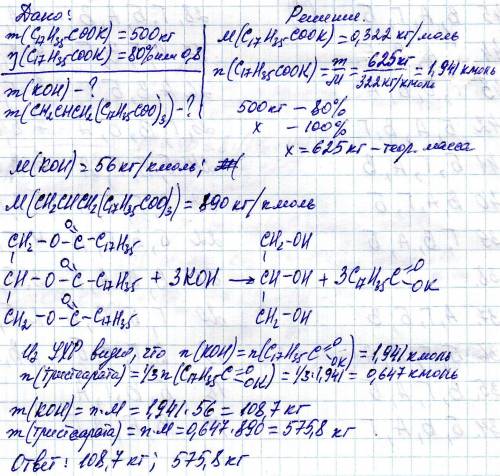 Дано:
m(C17H35COOK)=500кг
η(C17H35COOK)=80% или 0,8
m(KOH)-?
m(CH2CHCH2(C17H35COO)3)-?
Решение.
M(C17H35COOK)=0,322 кг/моль
n(C17H35COOK)=m/M=625кг/322кг/кмоль=1,941 кмоль
500кг - 80%
x - 100%
x=625кг - теор. масса
M(KOH)=56 кг/кмоль;
M(CH2CHCH2(C17H35COO)3)=890 кг/кмоль
O
CH2-O-C-C17H35 CH2-OH
O O
CH-O-C-C17H35 + 3KOH → CH-OH + 3C17H35C OK
O
CH2-O-C-C17H35 CH2-OH
Из УХР видно, что n(KOH)=n(C17H35C O OK)=1,941 кмоль
n(тристеарата)=1/3 n(C17H35C O OK)=1/3·1,941=0,647 кмоль
m(KOH)=n·M=1,941·56=108,7 кг
m(тристеарата)=n·M=0,647·890=575,8 кг
Ответ: 108,7 кг; 575,8 кг